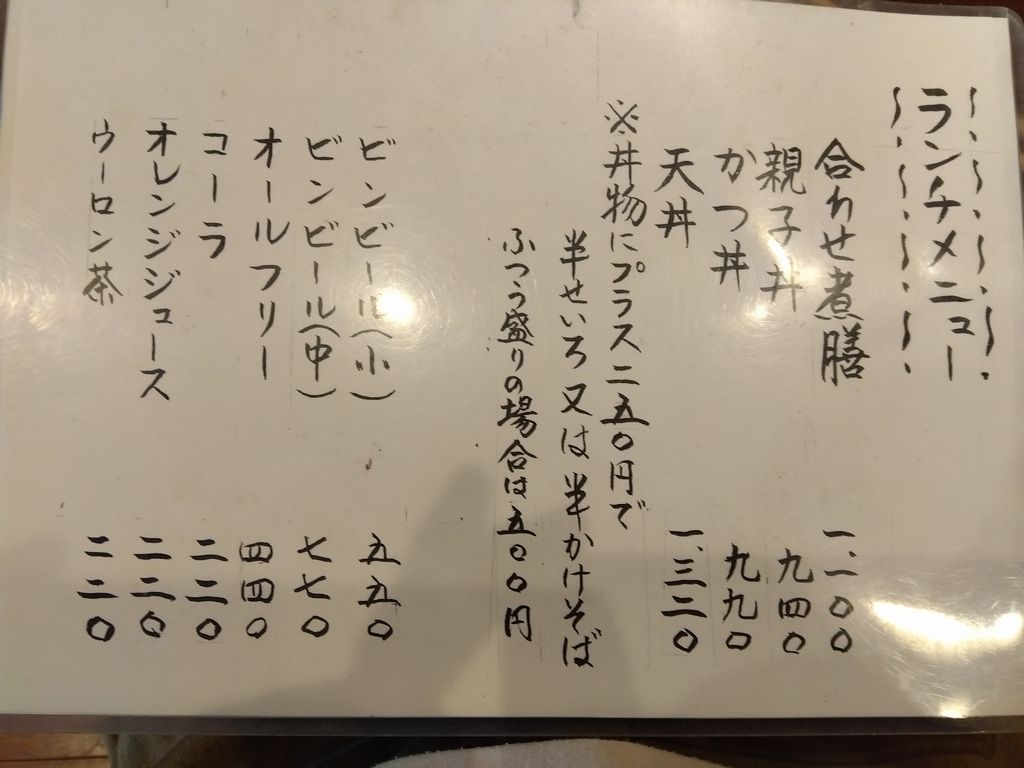 ランチメニュー
合わせ煮膳 一、一〇〇
親子丼 九四〇
かつ丼 九九〇
天丼 一、三二〇
※丼物にプラス二五〇円で
半せいろ又は半かけそば
ふつう盛りの場合は五〇〇円
ビンビール(小) 五五〇
ビンビール(中) 七七〇
オールフリー 四四〇
コーラ 二二〇
オレンジジュース 二二〇
ウーロン茶 二二〇